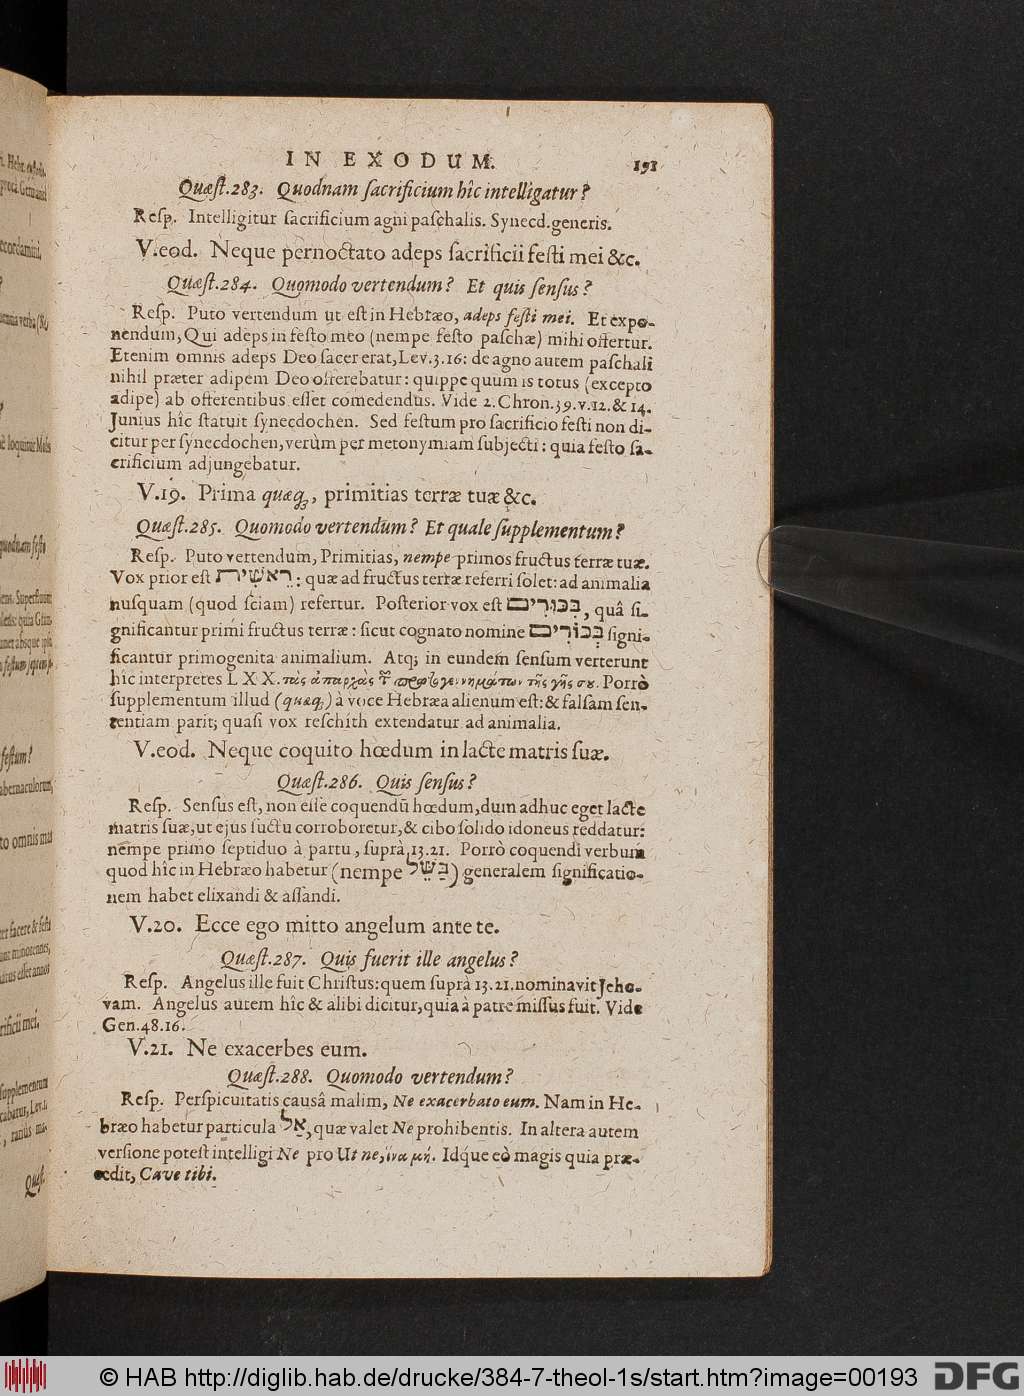 IN EXODUM. 191
Quæst.283. Quodnam sacrificium hîc intelligatur?
Resp. Intelligitur sacrificium agni paschalis. Synecd.generis.
V.eod. Neque pernoctato adeps sacrificii festi mei &c.
Quæst.284. Quomodo vertendum? Et quis sensus?
Resp. Puto vertendum ut est in Hebræo, adeps festi mei. Et expo-
nendum, Qui adeps in festo meo (nempe festo paschæ) mihi offertur.
Etenim omnis adeps Deo sacer erat, Lev.3.16: de agno autem paschali
nihil præter adipem Deo offerebatur: quippe quum is totus (excepto
adipe) ab offerentibus esset comedendus. Vide 2.Chron.39.v.12.& 14.
Junius hîc statuit synecdochen. Sed festum pro sacrificio festi non di-
citur per synecdochen, verùm per metonymiam subjecti: quia festo sa-
crificium adjungebatur.
V.19. Prima quæq;, primitias terræ tuæ &c.
Quæst.285. Quomodo vertendum? Et quale supplementum?
Resp. Puto vertendum, Primitias, nempe primos fructus terræ tuæ.
Vox prior est רֵאשִׁית: quæ ad fructus terræ referri solet: ad animalia
nusquam (quod sciam) refertur. Posterior vox est בִּכּוּרִים, quâ si-
gnificantur primi fructus terræ: sicut cognato nomine בְּכוֹרִים signi-
ficantur primogenita animalium. Atq; in eundem sensum verterunt
hîc interpretes LXX. τὰς ἀπαρχὰς τ πρωτογεννημάτων τῆς γῆς σου. Porrò
supplementum illud (quæq;) à voce Hebræa alienum est: & falsam sen-
tentiam parit; quasi vox reschith extendatur ad animalia.
V.eod. Neque coquito hœdum in lacte matris suæ.
Quæst.286. Quis sensus?
Resp. Sensus est, non esse coquendū hœdum, dum adhuc eget lacte
matris suæ, ut ejus suctu corroboretur, & cibo solido idoneus reddatur:
nempe primo septiduo à partu, suprà 13.21. Porrò coquendi verbum
quod hîc in Hebræo habetur (nempe בִּשֵּׁל) generalem significatio-
nem habet elixandi & assandi.
V.20. Ecce ego mitto angelum ante te.
Quæst.287. Quis fuerit ille angelus?
Resp. Angelus ille fuit Christus: quem suprà 13.21.nominavit Jeho-
vam. Angelus autem hîc & alibi dicitur, quia à patre missus fuit. Vide
Gen.48.16.
V.21. Ne exacerbes eum.
Quæst.288. Quomodo vertendum?
Resp. Perspicuitatis causâ malim, Ne exacerbato eum. Nam in He-
bræo habetur particula אַל, quæ valet Ne prohibentis. In altera autem
versione potest intelligi Ne pro Ut ne, ἵνα μή. Idque eò magis quia præ-
cedit, Cave tibi.
© HAB http://diglib.hab.de/drucke/384-7-theol-1s/start.htm?image=00193 DFG